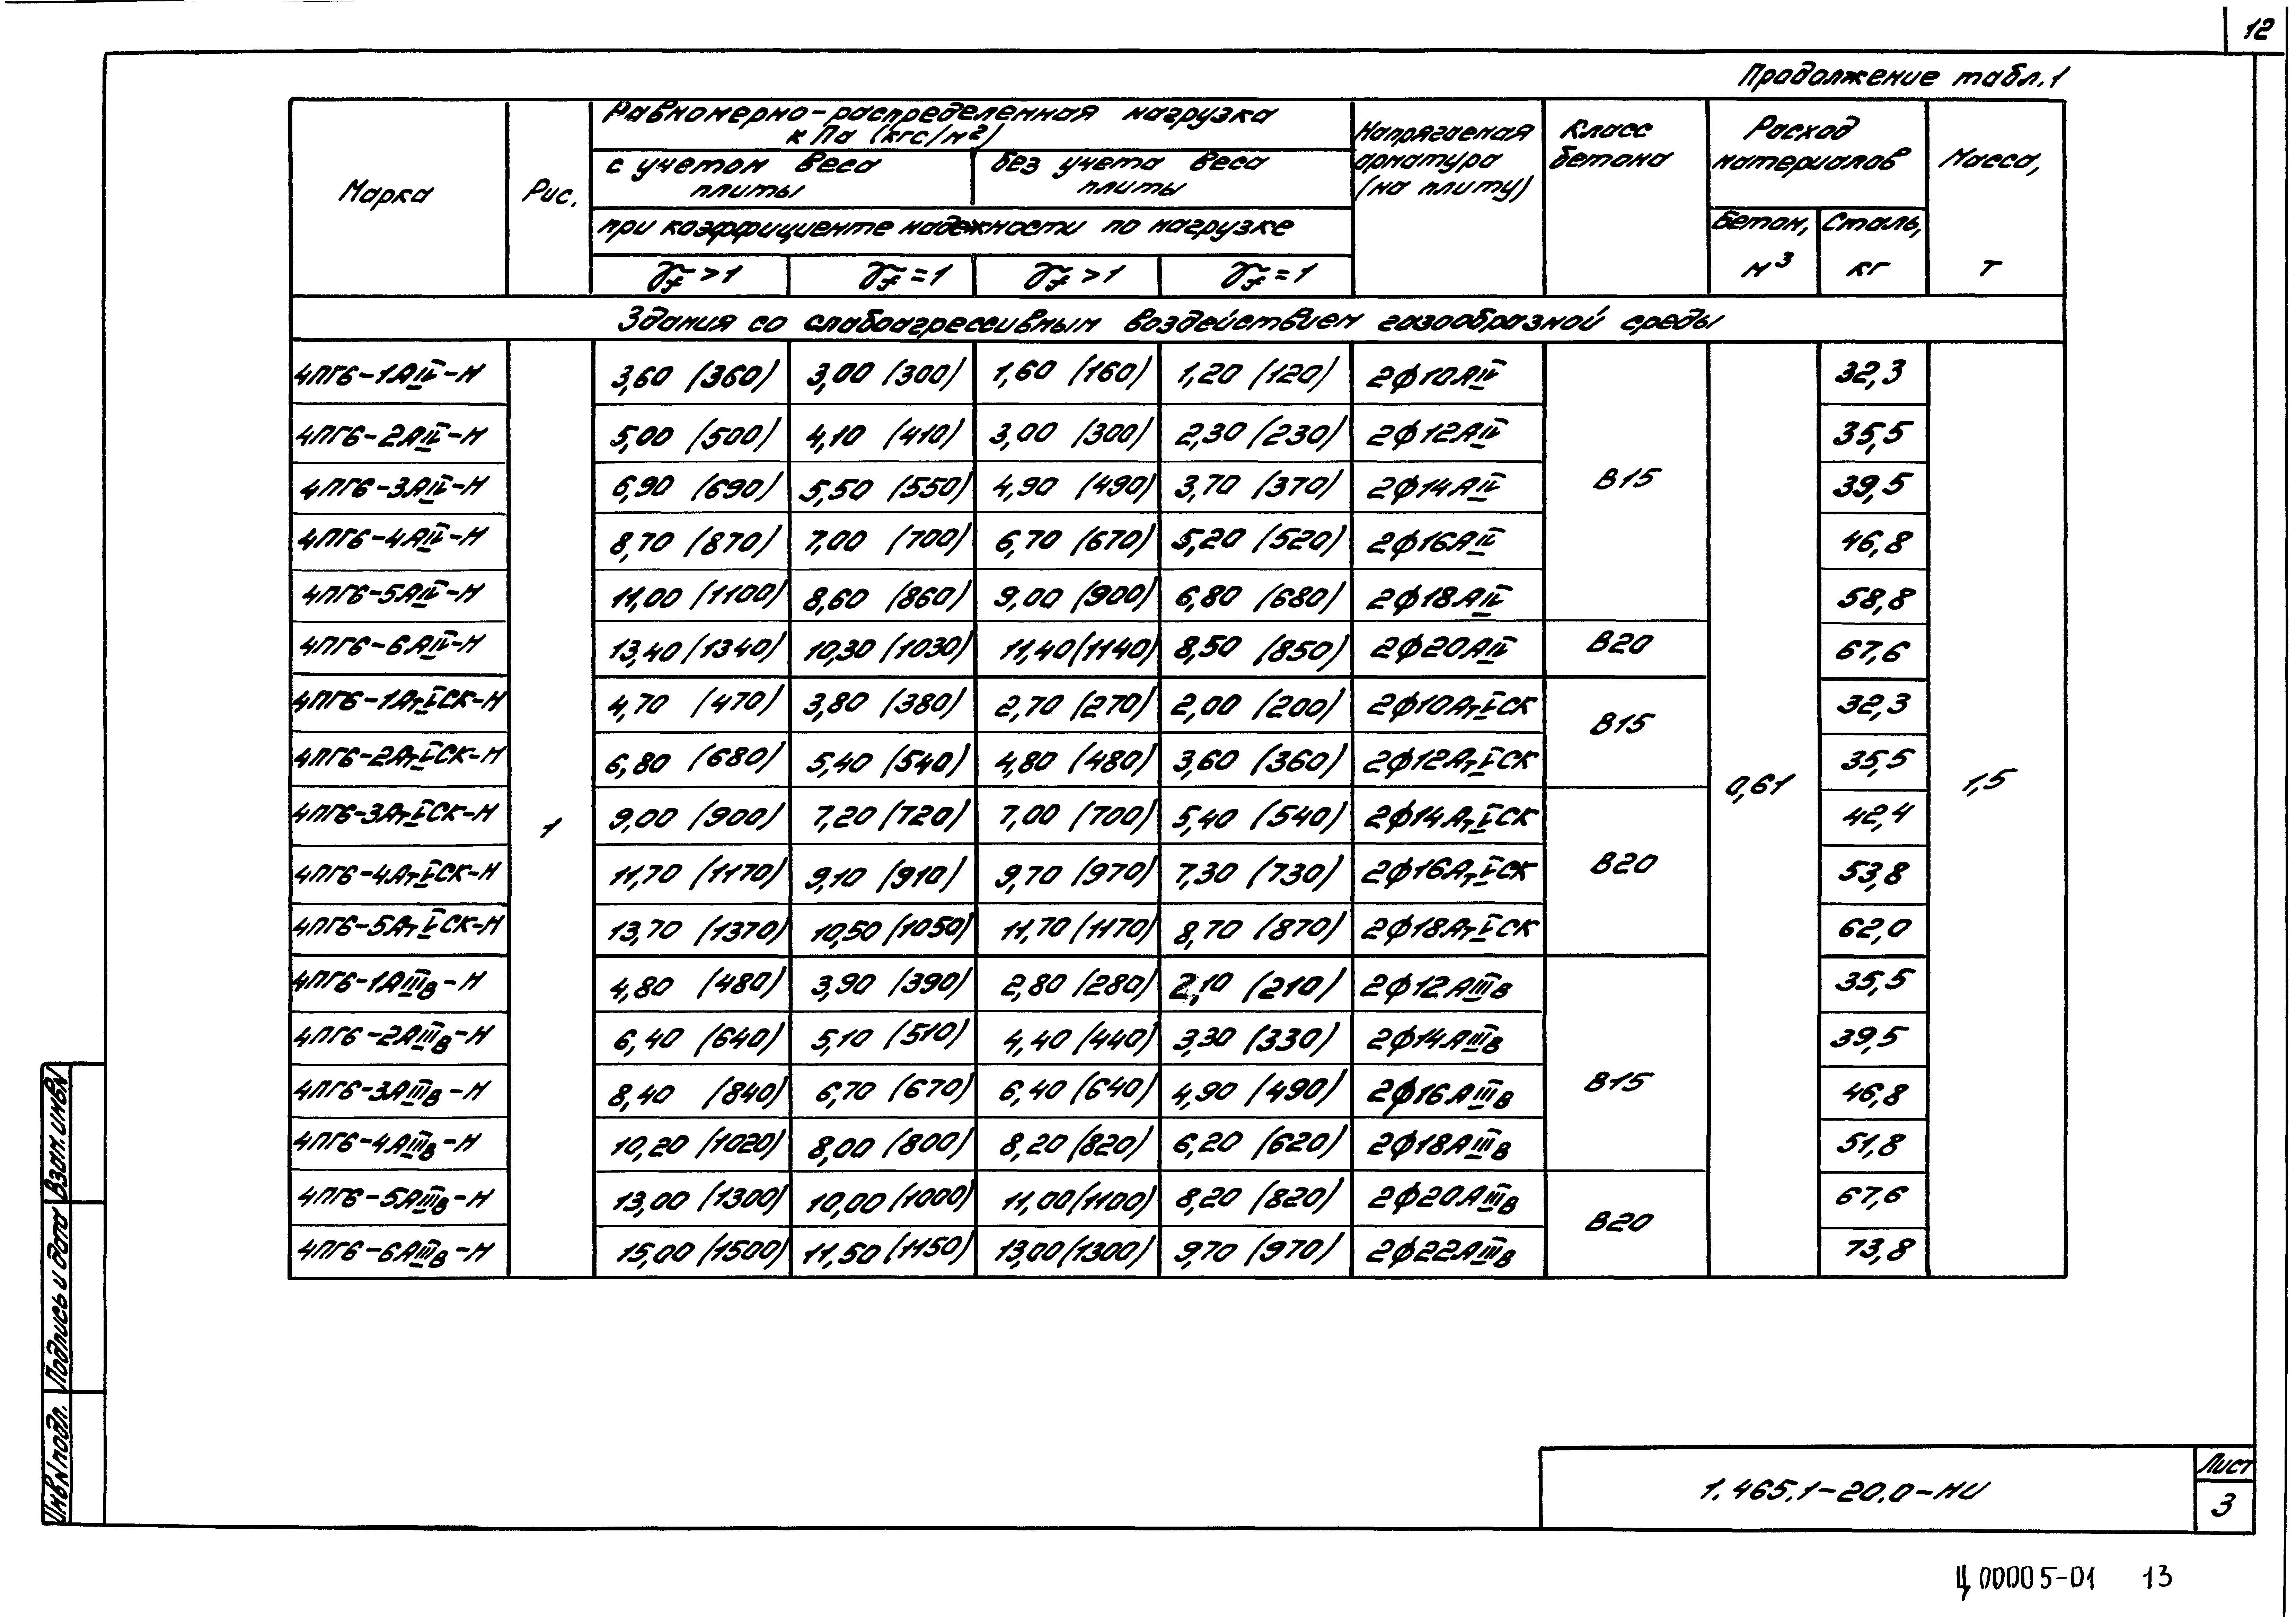 12
Продолжение табл.1
Марка
Рис.
Равномерно-распределенная нагрузка
кПа (кгс/м²)
с учетом веса
плиты
без учета веса
плиты
при коэффициенте надежности по нагрузке
γf >1
γf =1
γf >1
γf =1
Напрягаемая
арматура
(на плиту)
Класс
бетона
Расход
материалов
Бетон,
м³
Сталь,
кг
Масса,
т
Здания со слабоагрессивным воздействием газообразной среды
4ПГ6-1АIV-Н 3,60 (360) 3,00 (300) 1,60 (160) 1,20 (120) 2ф10АIV 32,3
4ПГ6-2АIV-Н 5,00 (500) 4,10 (410) 3,00 (300) 2,30 (230) 2ф12АIV 35,5
4ПГ6-3АIV-Н 6,90 (690) 5,50 (550) 4,90 (490) 3,70 (370) 2ф14АIV В15 39,5
4ПГ6-4АIV-Н 8,70 (870) 7,00 (700) 6,70 (670) 5,20 (520) 2ф16АIV 46,8
4ПГ6-5АIV-Н 11,00 (1100) 8,60 (860) 9,00 (900) 6,80 (680) 2ф18АIV 58,8
4ПГ6-6АIV-Н 13,40 (1340) 10,30 (1030) 11,40 (1140) 8,50 (850) 2ф20АIV В20 67,6
4ПГ6-1АтVСК-Н 4,70 (470) 3,80 (380) 2,70 (270) 2,00 (200) 2ф10АтVСК В15 32,3
4ПГ6-2АтVСК-Н 6,80 (680) 5,40 (540) 4,80 (480) 3,60 (360) 2ф12АтVСК 0,61 35,5 1,5
4ПГ6-3АтVСК-Н 1 9,00 (900) 7,20 (720) 7,00 (700) 5,40 (540) 2ф14АтVСК 42,4
4ПГ6-4АтVСК-Н 11,70 (1170) 9,10 (910) 9,70 (970) 7,30 (730) 2ф16АтVСК В20 53,8
4ПГ6-5АтVСК-Н 13,70 (1370) 10,50 (1050) 11,70 (1170) 8,70 (870) 2ф18АтVСК 62,0
4ПГ6-1АIIIв-Н 4,80 (480) 3,90 (390) 2,80 (280) 2,10 (210) 2ф12АIIIв 35,5
4ПГ6-2АIIIв-Н 6,40 (640) 5,10 (510) 4,40 (440) 3,30 (330) 2ф14АIIIв 39,5
4ПГ6-3АIIIв-Н 8,40 (840) 6,70 (670) 6,40 (640) 4,90 (490) 2ф16АIIIв В15 46,8
4ПГ6-4АIIIв-Н 10,20 (1020) 8,00 (800) 8,20 (820) 6,20 (620) 2ф18АIIIв 51,8
4ПГ6-5АIIIв-Н 13,00 (1300) 10,00 (1000) 11,00 (1100) 8,20 (820) 2ф20АIIIв В20 67,6
4ПГ6-6АIIIв-Н 15,00 (1500) 11,50 (1150) 13,00 (1300) 9,70 (970) 2ф22АIIIв 73,8
Взам.инв.N
Подпись и дата
Инв.N подл.
1.465.1-20.0-НИ
Лист
3
Ц00005-01 13